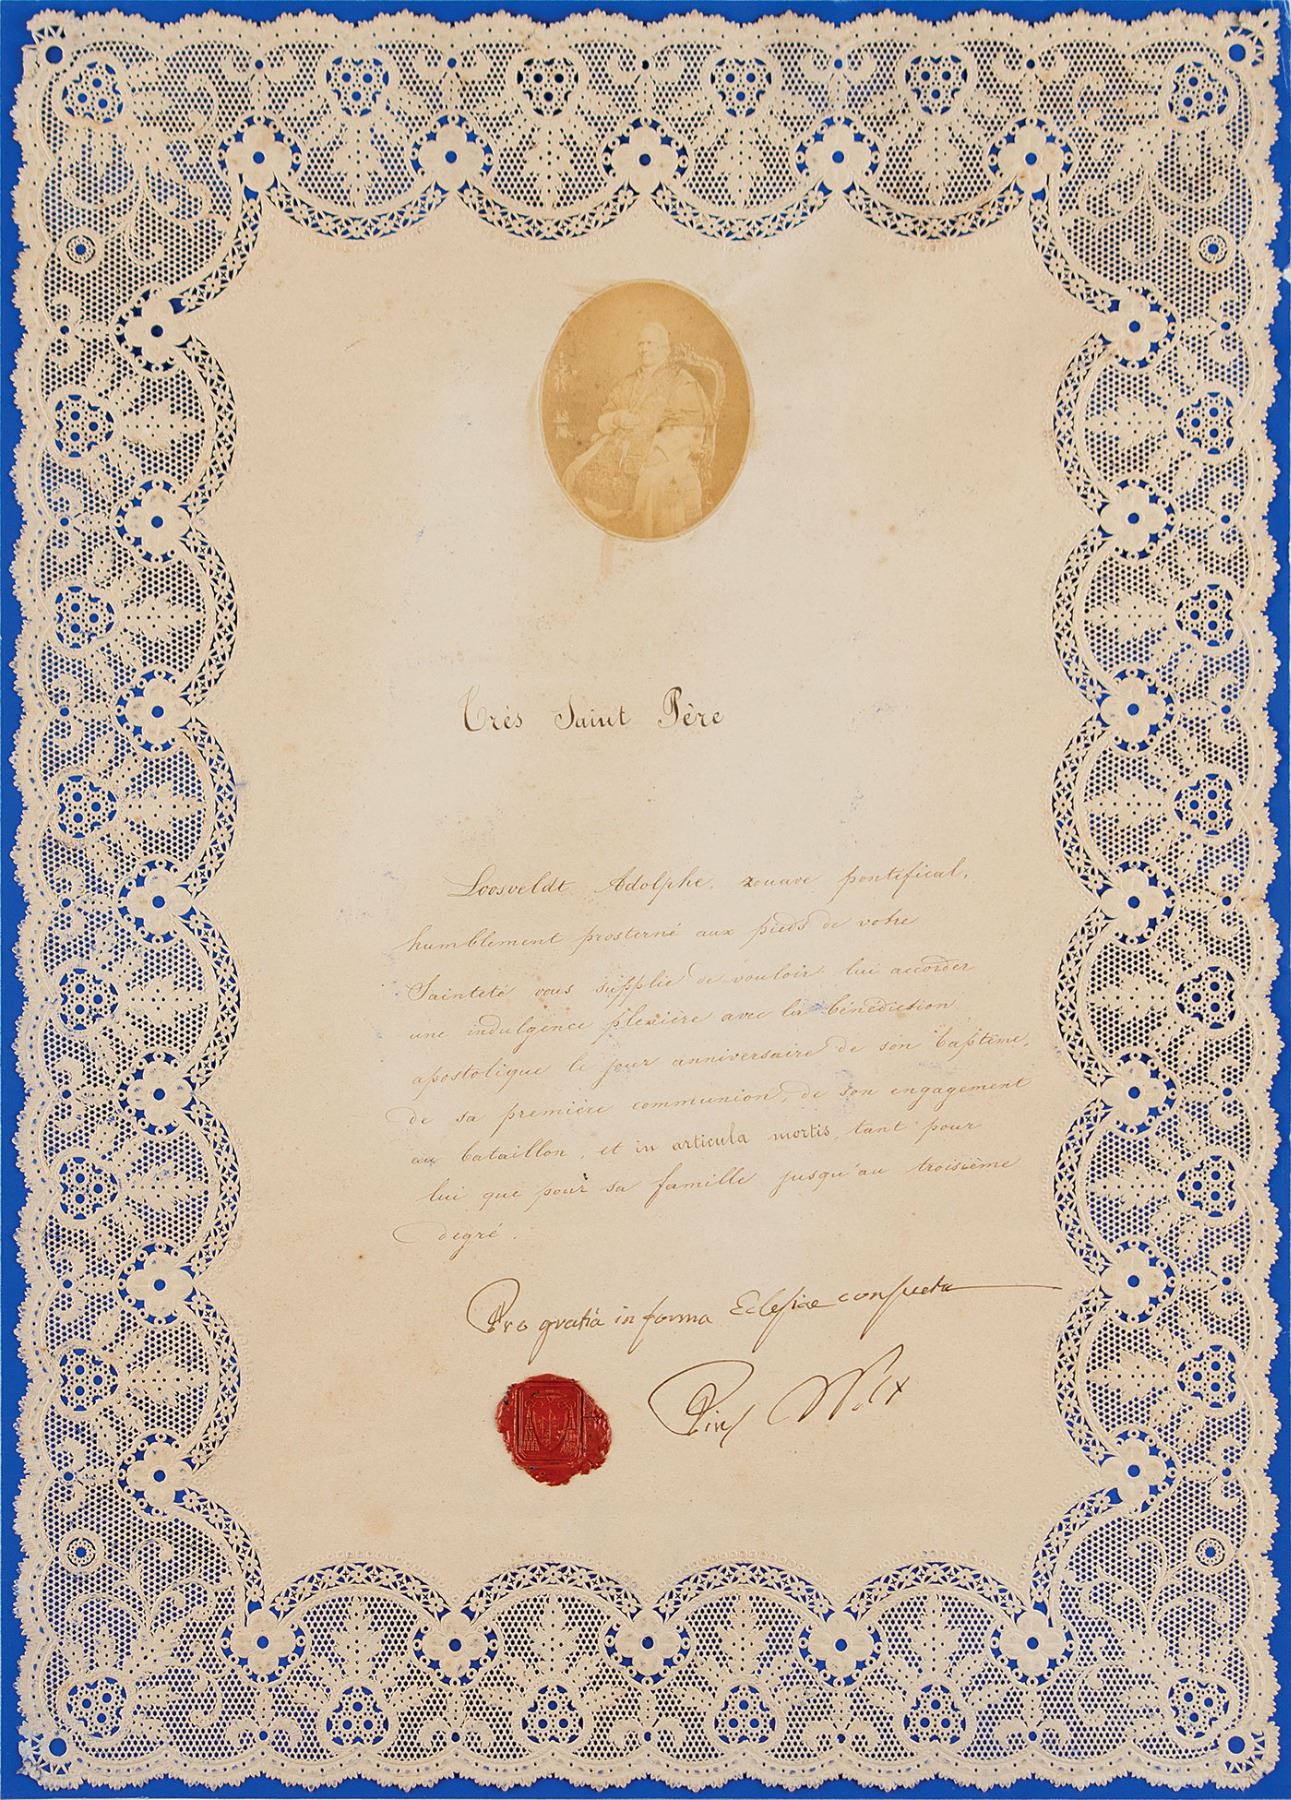 Très Saint Père
Loosveldt Adolphe, zouave pontifical,
humblement prosterné aux pieds de votre
Sainteté vous supplie de vouloir lui accorder
une indulgence plenière avec la bénédiction
apostolique le jour anniversaire de son baptême,
de sa première communion, de son engagement
au bataillon, et in articula mortis, tant pour
lui que pour sa famille jusqu'au troisième
degré.
Pro gratia in forma Eclesiae consueta
Pius